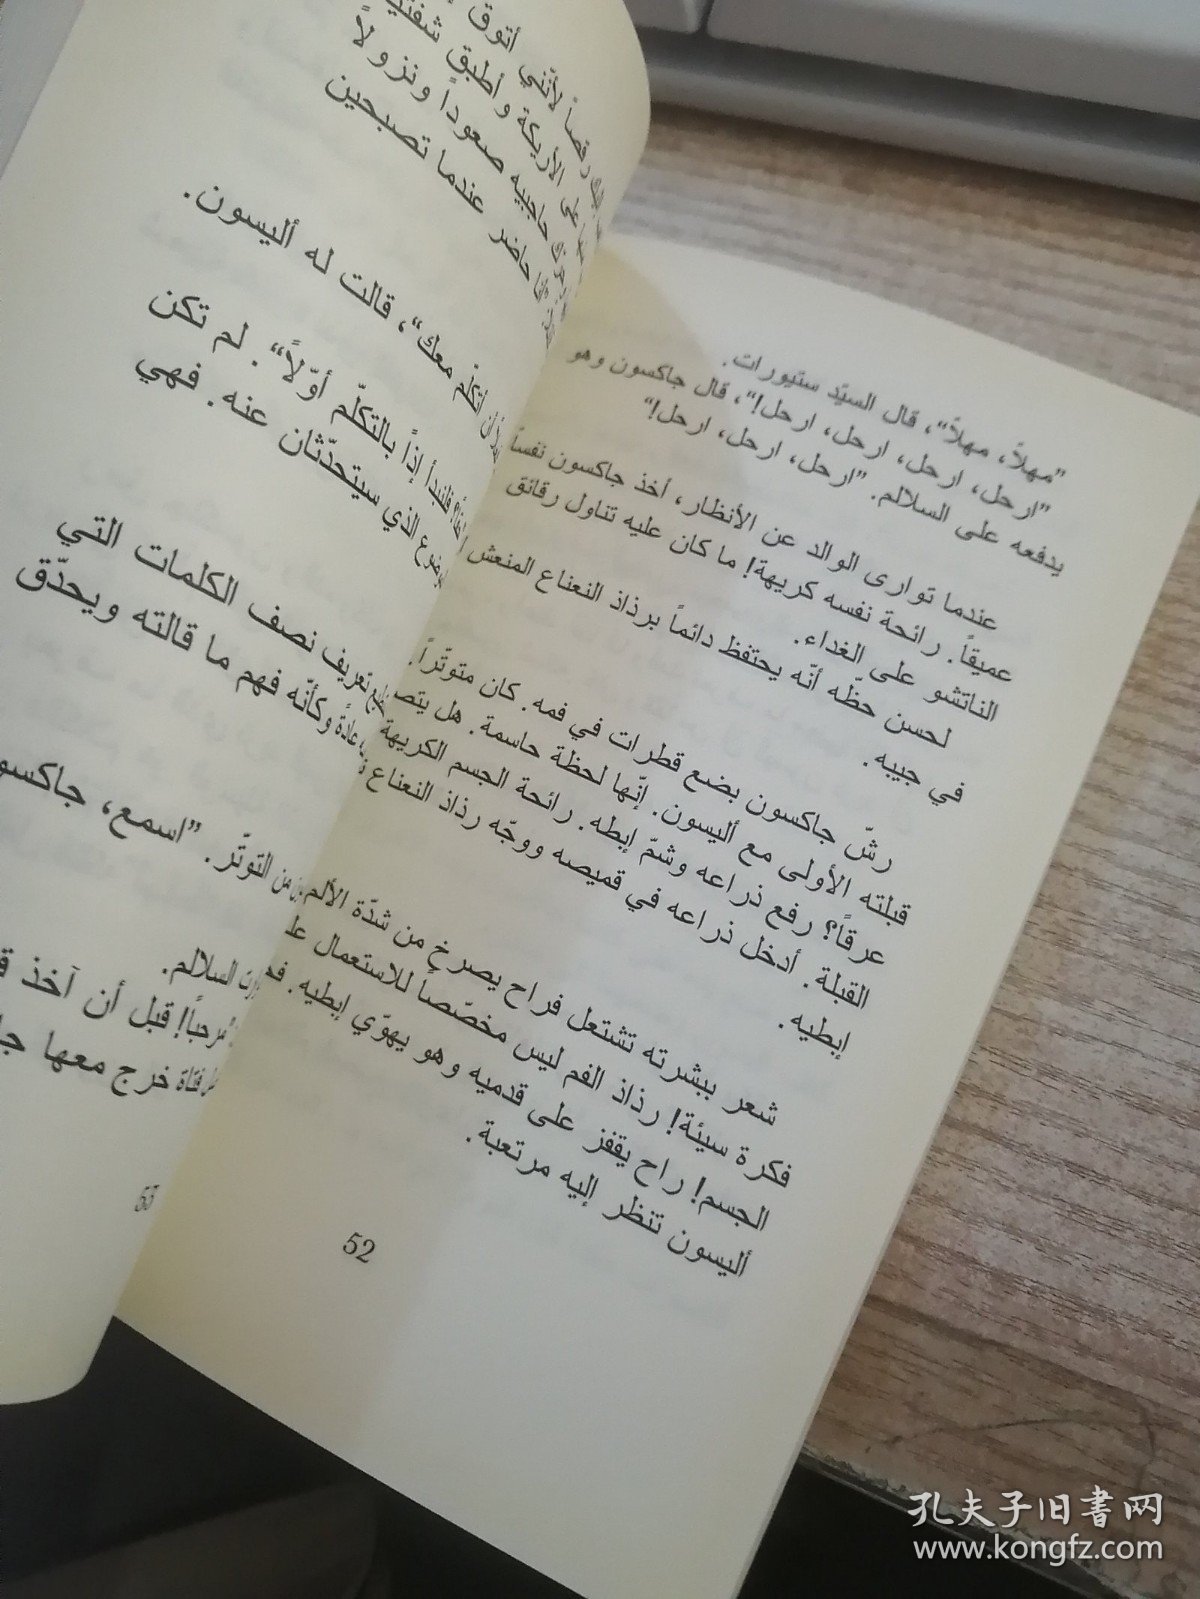 "مهلاً، مهلاً"، قال السيّد ستيورات.
"ارحل، ارحل، ارحل، ارحل!"، قال جاكسون وهو
يدفعه على السلالم. "ارحل، ارحل، ارحل!"
عندما توارى الوالد عن الأنظار، أخذ جاكسون نفساً
عميقاً. رائحة نفسه كريهة! ما كان عليه تناول رقائق
الناتشو على الغداء.
لحسن حظّه أنّه يحتفظ دائماً برذاذ النعناع المنعش
في جيبه.
رشّ جاكسون بضع قطرات في فمه. كان متوتّراً.
قبلته الأولى مع أليسون. إنّها لحظة حاسمة. هل
عرقاً؟ رفع ذراعه وشمّ إبطه. رائحة الجسم الكريهة
القبلة. أدخل ذراعه في قميصه ووجّه رذاذ النعناع
إبطيه.
شعر ببشرته تشتعل فراح يصرخ من شدّة الألم
فكرة سيئة! رذاذ الفم ليس مخصّصاً للاستعمال
الجسم! راح يقفز على قدميه وهو يهوّي إبطيه.
أليسون تنظر إليه مرتعبة.
52
رقصاً لأنّني أتوق
على الأريكة وأطبق
حاجبيه صعوداً ونزولاً
حاضر عندما تصبحين
أن أتكلّم معك"، قالت له أليسون.
فلنبدأ إذاً بالتكلّم أوّلاً". لم تكن
الذي سيتحدّثان عنه. فهي
تعريف نصف الكلمات التي
عادةً وكأنّه فهم ما قالته ويحدّق
من التوتّر. "اسمع،
السلالم.
مرحباً! قبل أن آخذ
فتاة خرج معها
53
孔夫子旧书网
www.kongfz.com